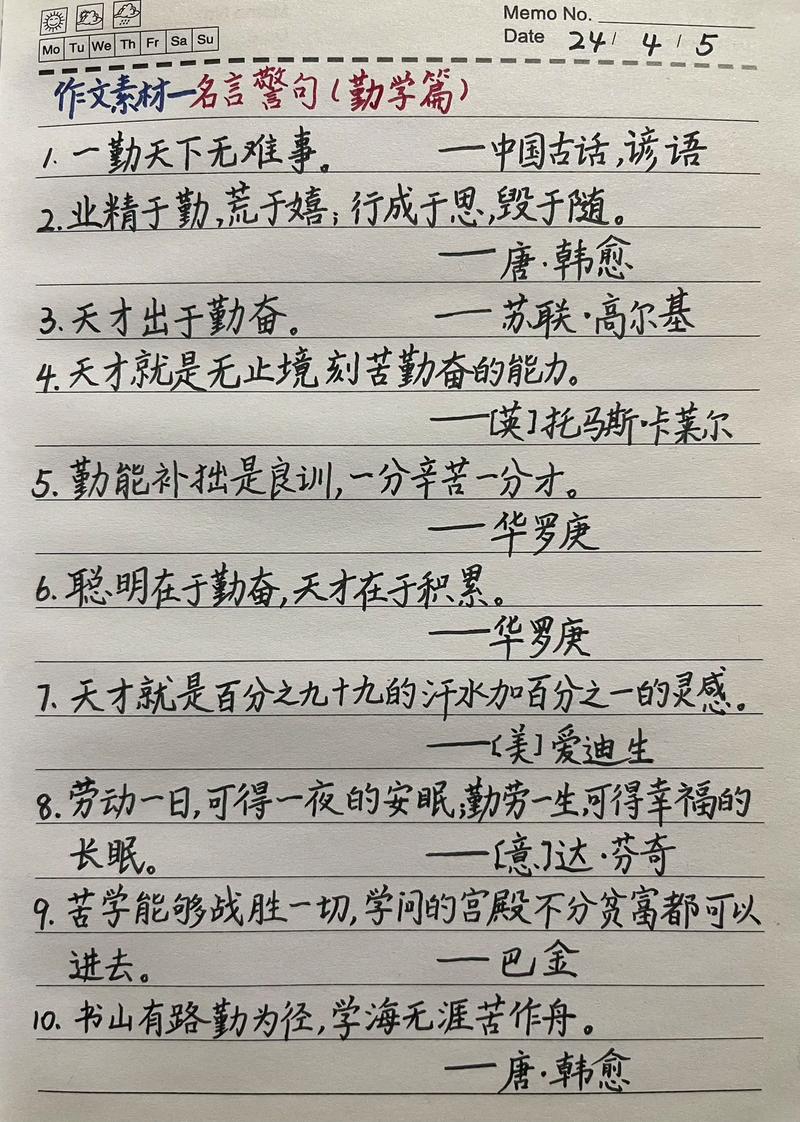 Memo No.
Mo Tu We Th Fr Sa Su
Date 24 / 4 / 5
作文素材—名言警句(勤学篇)
1. 一勤天下无难事。 ——中国古话,谚语
2. 业精于勤,荒于嬉;行成于思,毁于随。
——唐·韩愈
3. 天才出于勤奋。 ——苏联·高尔基
4. 天才就是无止境刻苦勤奋的能力。
——[英]托马斯·卡莱尔
5. 勤能补拙是良训,一分辛苦一分才。
——华罗庚
6. 聪明在于勤奋,天才在于积累。
——华罗庚
7. 天才就是百分之九十九的汗水加百分之一的灵感。
——[美]爱迪生
8. 劳动一日,可得一夜的安眠;勤劳一生,可得幸福的
长眠。 ——[意]达·芬奇
9. 苦学能够战胜一切,学问的宫殿不分贫富都可以
进去。 ——巴金
10. 书山有路勤为径,学海无涯苦作舟。
——唐·韩愈